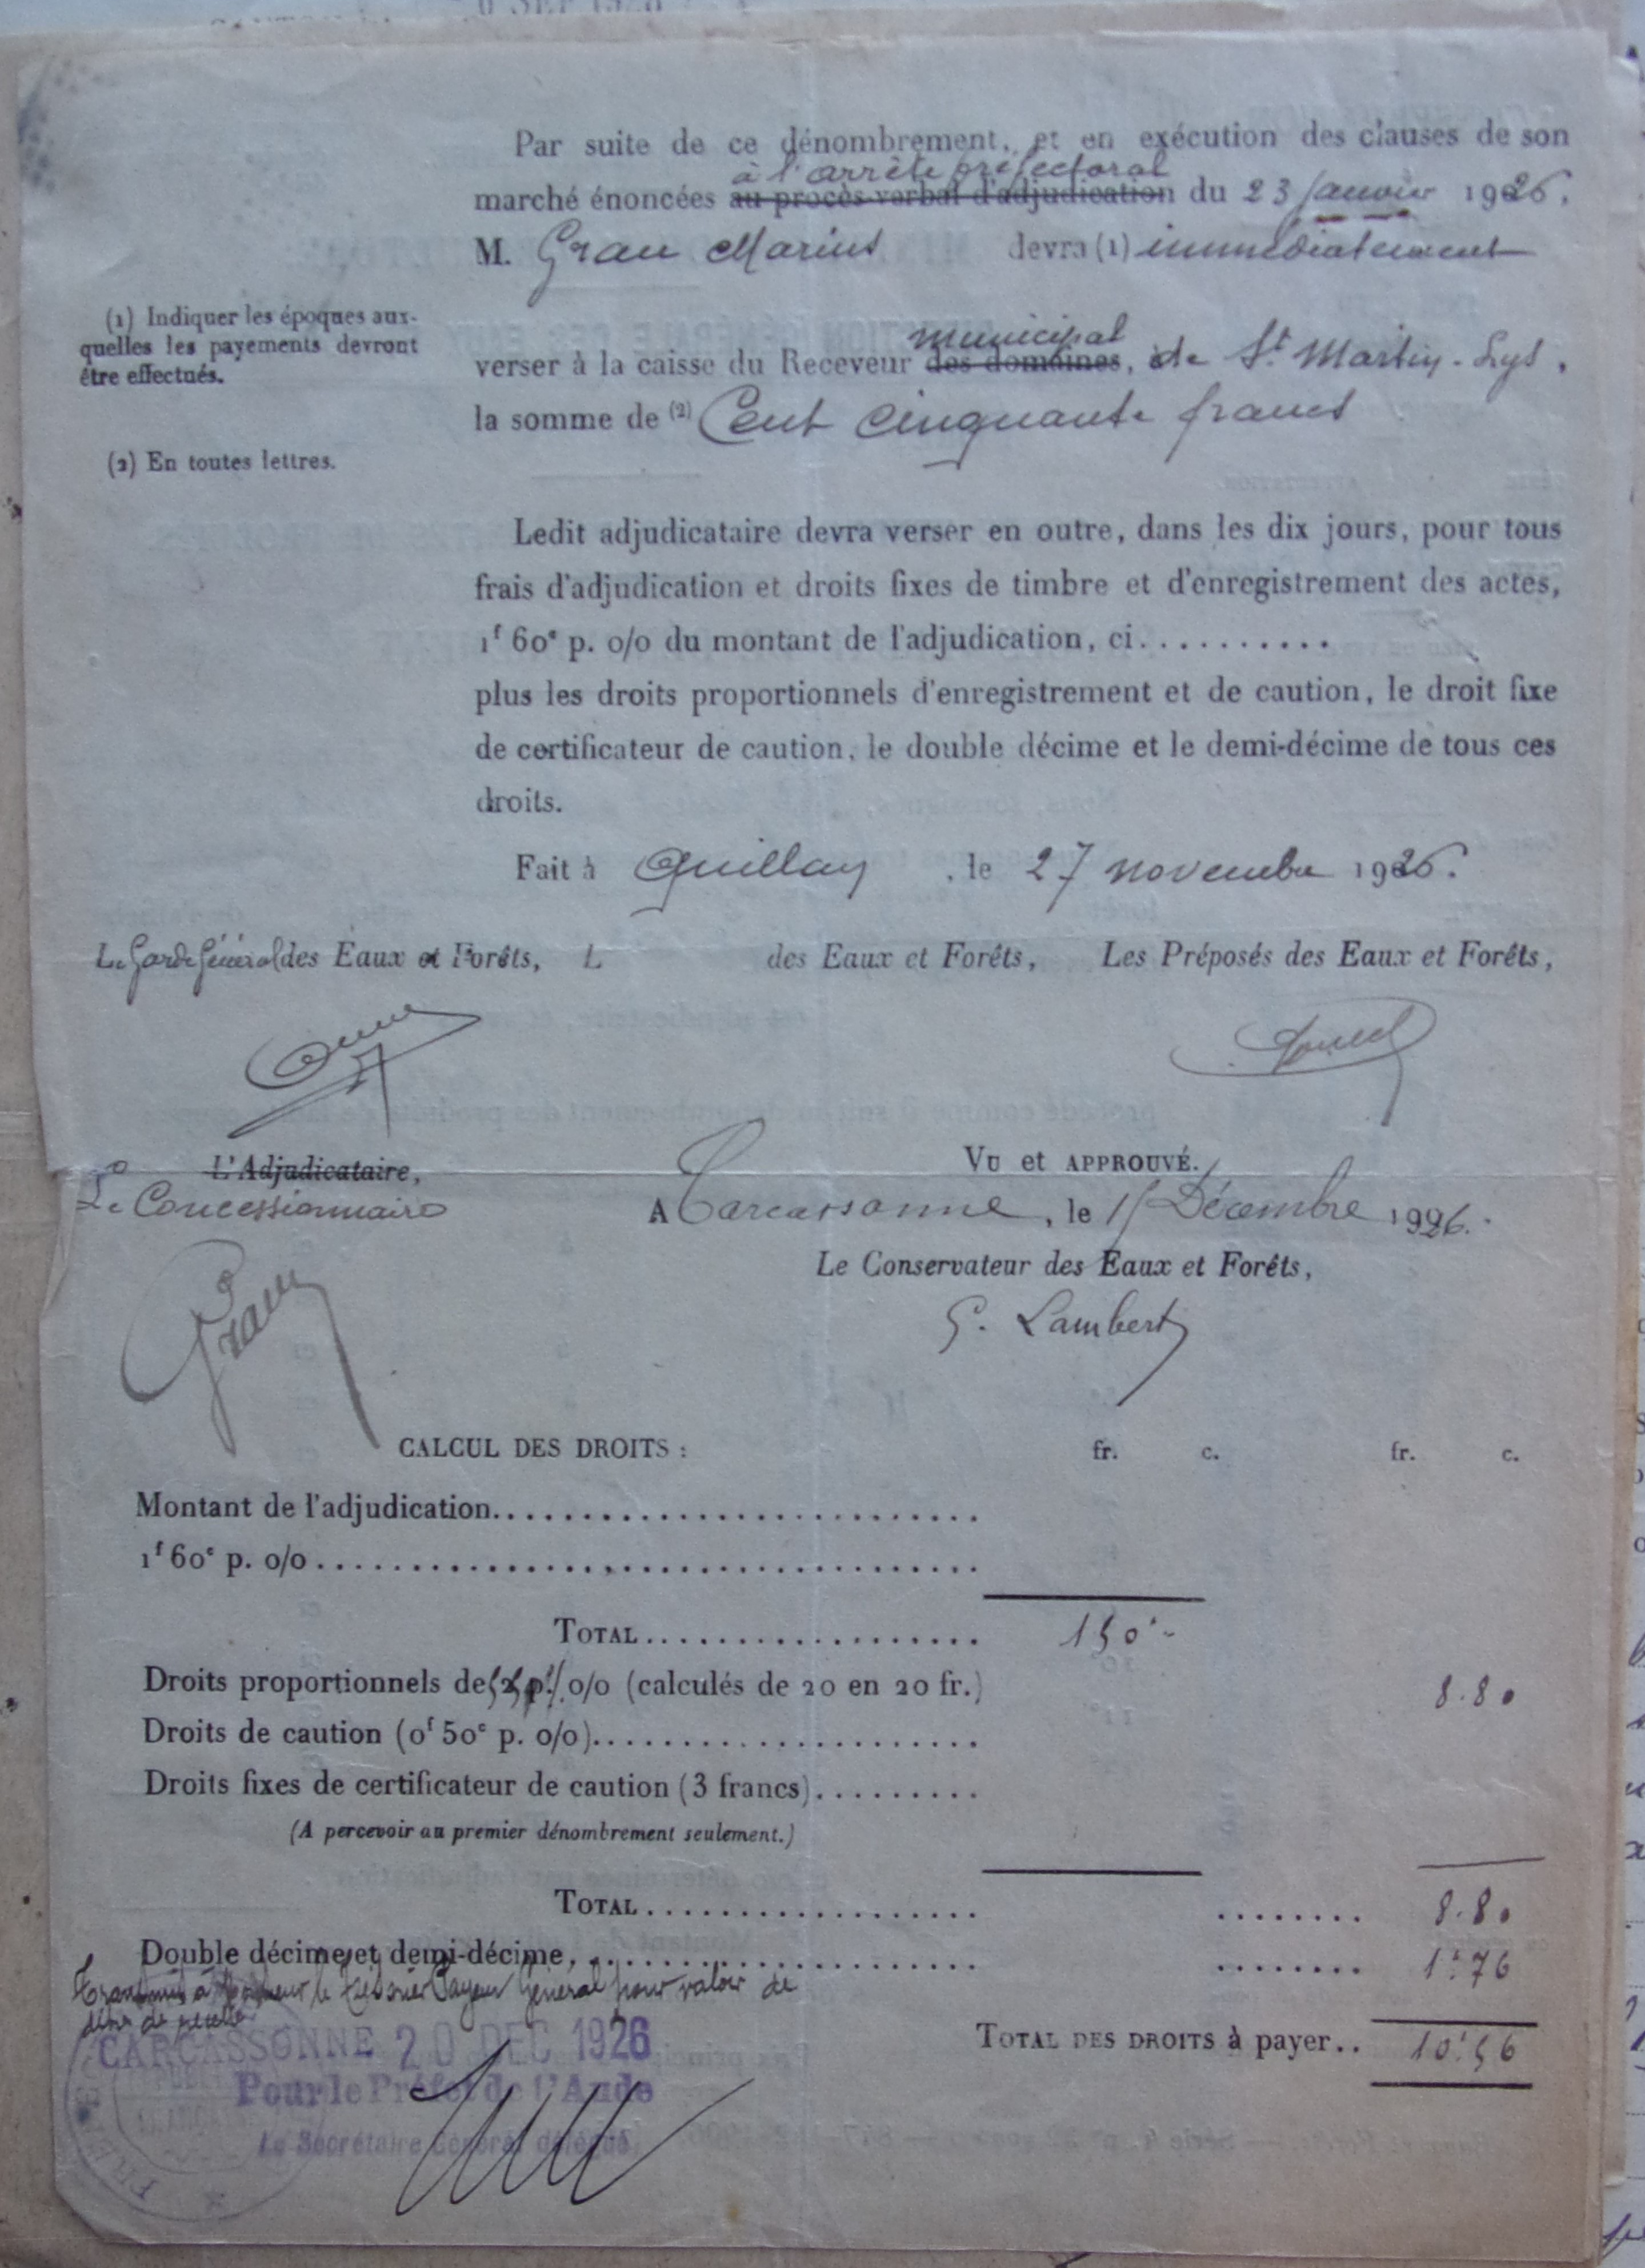 Par suite de ce dénombrement, et en exécution des clauses de son
à l'arrêté préfectoral
marché énoncées au procès-verbal d'adjudication du 23 janvier 1926.
M. Grau Marius devra (1) immédiatement
(1) Indiquer les époques aux-
quelles les payements devront
être effectués.
municipal
verser à la caisse du Receveur des domaines, de St Martin-Lys.
la somme de (2) Cent cinquante francs
(2) En toutes lettres.
Ledit adjudicataire devra verser en outre, dans les dix jours, pour tous
frais d'adjudication et droits fixes de timbre et d'enregistrement des actes,
1f 60c p. 0/0 du montant de l'adjudication, ci..........
plus les droits proportionnels d'enregistrement et de caution, le droit fixe
de certificateur de caution, le double décime et le demi-décime de tous ces
droits.
Fait à Quillan, le 27 novembre 1926.
Le Garde Général des Eaux et Forêts, L des Eaux et Forêts, Les Préposés des Eaux et Forêts,
L'Adjudicataire,
Le Concessionnaire
Vu et APPROUVÉ.
A Carcassonne, le 15 Décembre 1926.
Le Conservateur des Eaux et Forêts,
Grau
G. Lambert
CALCUL DES DROITS : fr. c. fr. c.
Montant de l'adjudication...........................
1f 60c p. 0/0.....................................
TOTAL................... 150f -
Droits proportionnels de 0/0 (calculés de 20 en 20 fr.) 8.80
Droits de caution (0f 50c p. 0/0)......................
Droits fixes de certificateur de caution (3 francs).........
(A percevoir au premier dénombrement seulement.)
TOTAL................... ........ 8.80
Double décime et demi-décime....................... ........ 1f76
Transmis à Monsieur le Trésorier Payeur Général pour valoir de
titre de recette
CARCASSONNE 20 DEC 1926
TOTAL DES DROITS à payer.. 10f56
Pour le Préfet de l'Aude
Le Secrétaire Général délégué,